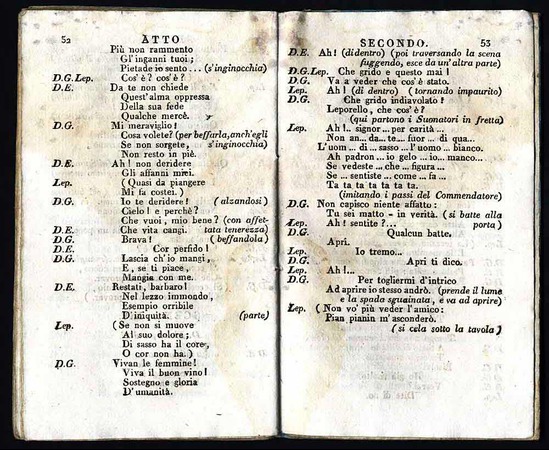 52 ATTO
Più non rammento
Gl'inganni tuoi;
Pietade io sento... (s'inginocchia)
D.G.Lep. Cos'è? cos'è?
D.E. Da te non chiede
Quest'alma oppressa
Della sua fede
Qualche mercè.
D.G. Mi meraviglio!
Cosa volete? (per beffarla, anch'egli
Se non sorgete, s'inginocchia)
Non resto in piè.
D.E. Ah! non deridere
Gli affanni miei.
Lep. (Quasi da piangere
Mi fa costei.)
D.G. Io te deridere! (alzandosi)
Cielo! e perchè?
Che vuoi, mio bene? (con affet-
D.E. Che vita cangi. tata tenerezza)
D.G. Brava! (beffandola)
D.E. Cor perfido!
D.G. Lascia ch'io mangi,
E, se ti piace,
Mangia con me.
D.E. Restati, barbaro!
Nel lezzo immondo,
Esempio orribile
D'iniquità. (parte)
Lep. (Se non si muove
Al suo dolore;
Di sasso ha il core,
O cor non ha.)
D.G. Vivan le femmine!
Viva il buon vino!
Sostegno e gloria
D'umanità.
SECONDO. 53
D.E. Ah! (di dentro) (poi traversando la scena
fuggendo, esce da un'altra parte)
D.G.Lep. Che grido e questo mai!
D.G. Va a veder che cos'è stato.
Lep. Ah! (di dentro) (tornando impaurito)
D.G. Che grido indiavolato!
Leporello, che cos'è?
(qui partono i Suonatori in fretta)
Lep. Ah!.. signor... per carità...
Non an... da... te... fuor... di qua...
L'uom... di... sasso... l'uomo... bianco.
Ah padron... io gelo... io... manco...
Se vedeste... che... figura...
Se... sentiste... come... fa...
Ta ta ta ta ta ta ta.
(imitando i passi del Commendatore)
D.G. Non capisco niente affatto:
Tu sei matto - in verità. (si batte alla
Lep. Ah! sentite?... porta)
D.G. Qualcun batte.
Apri.
Lep. Io tremo...
D.G. Apri ti dico.
Lep. Ah!...
D.G. Per togliermi d'intrico
Ad aprire io stesso andrò. (prende il lume
e la spada sguainata, e va ad aprire)
Lep. (Non vo' più veder l'amico:
Pian pianin m'asconderò.
(si cela sotto la tavola)